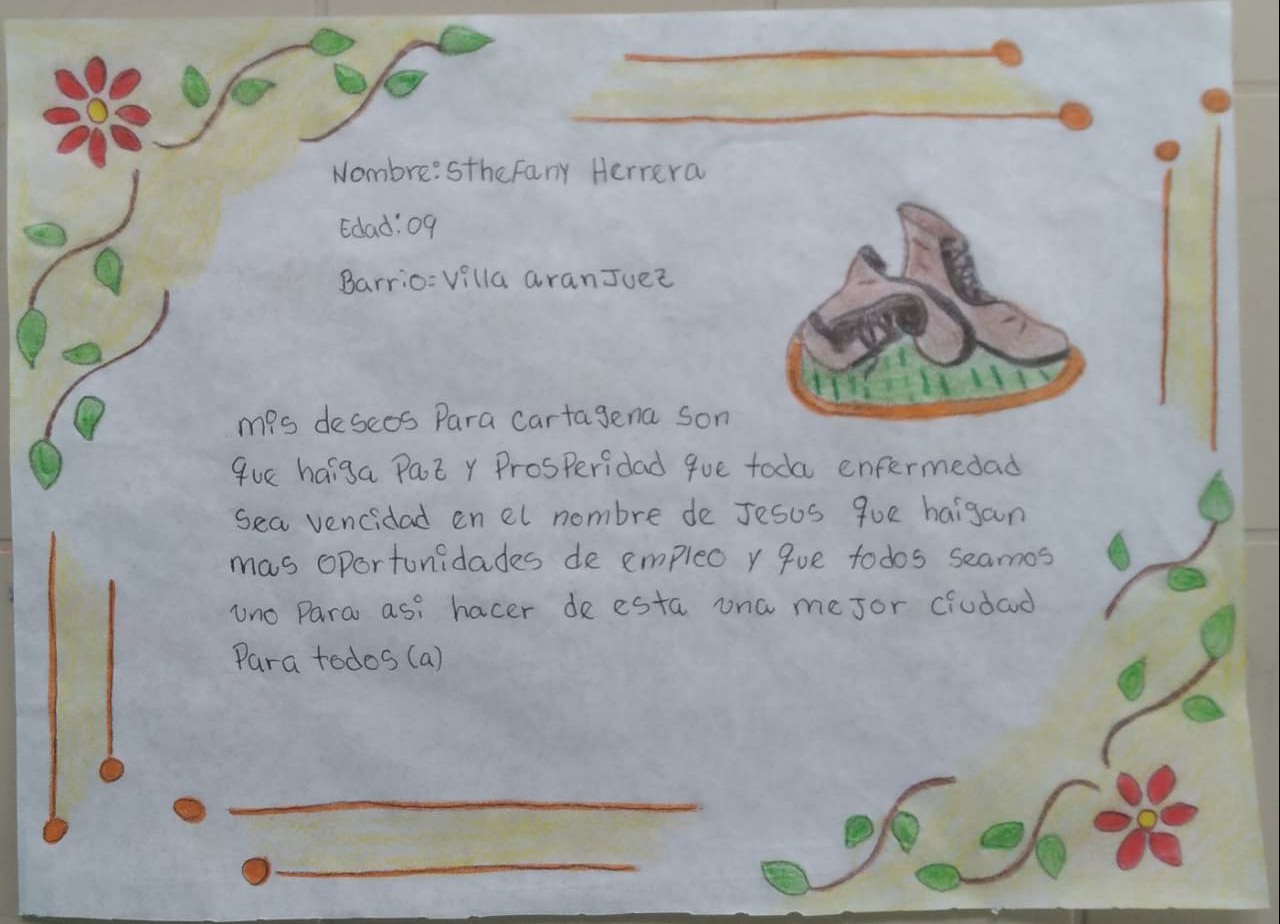 Nombre: Sthefany Herrera
Edad: 09
Barrio= Villa aranJuez
mis deseos Para cartagena son
que haiga Paz y ProsPeridad que toda enfermedad
sea vencidad en el nombre de Jesus que haigan
mas oportunidades de empleo y que todos seamos
uno Para asi hacer de esta una mejor ciudad
Para todos (a)